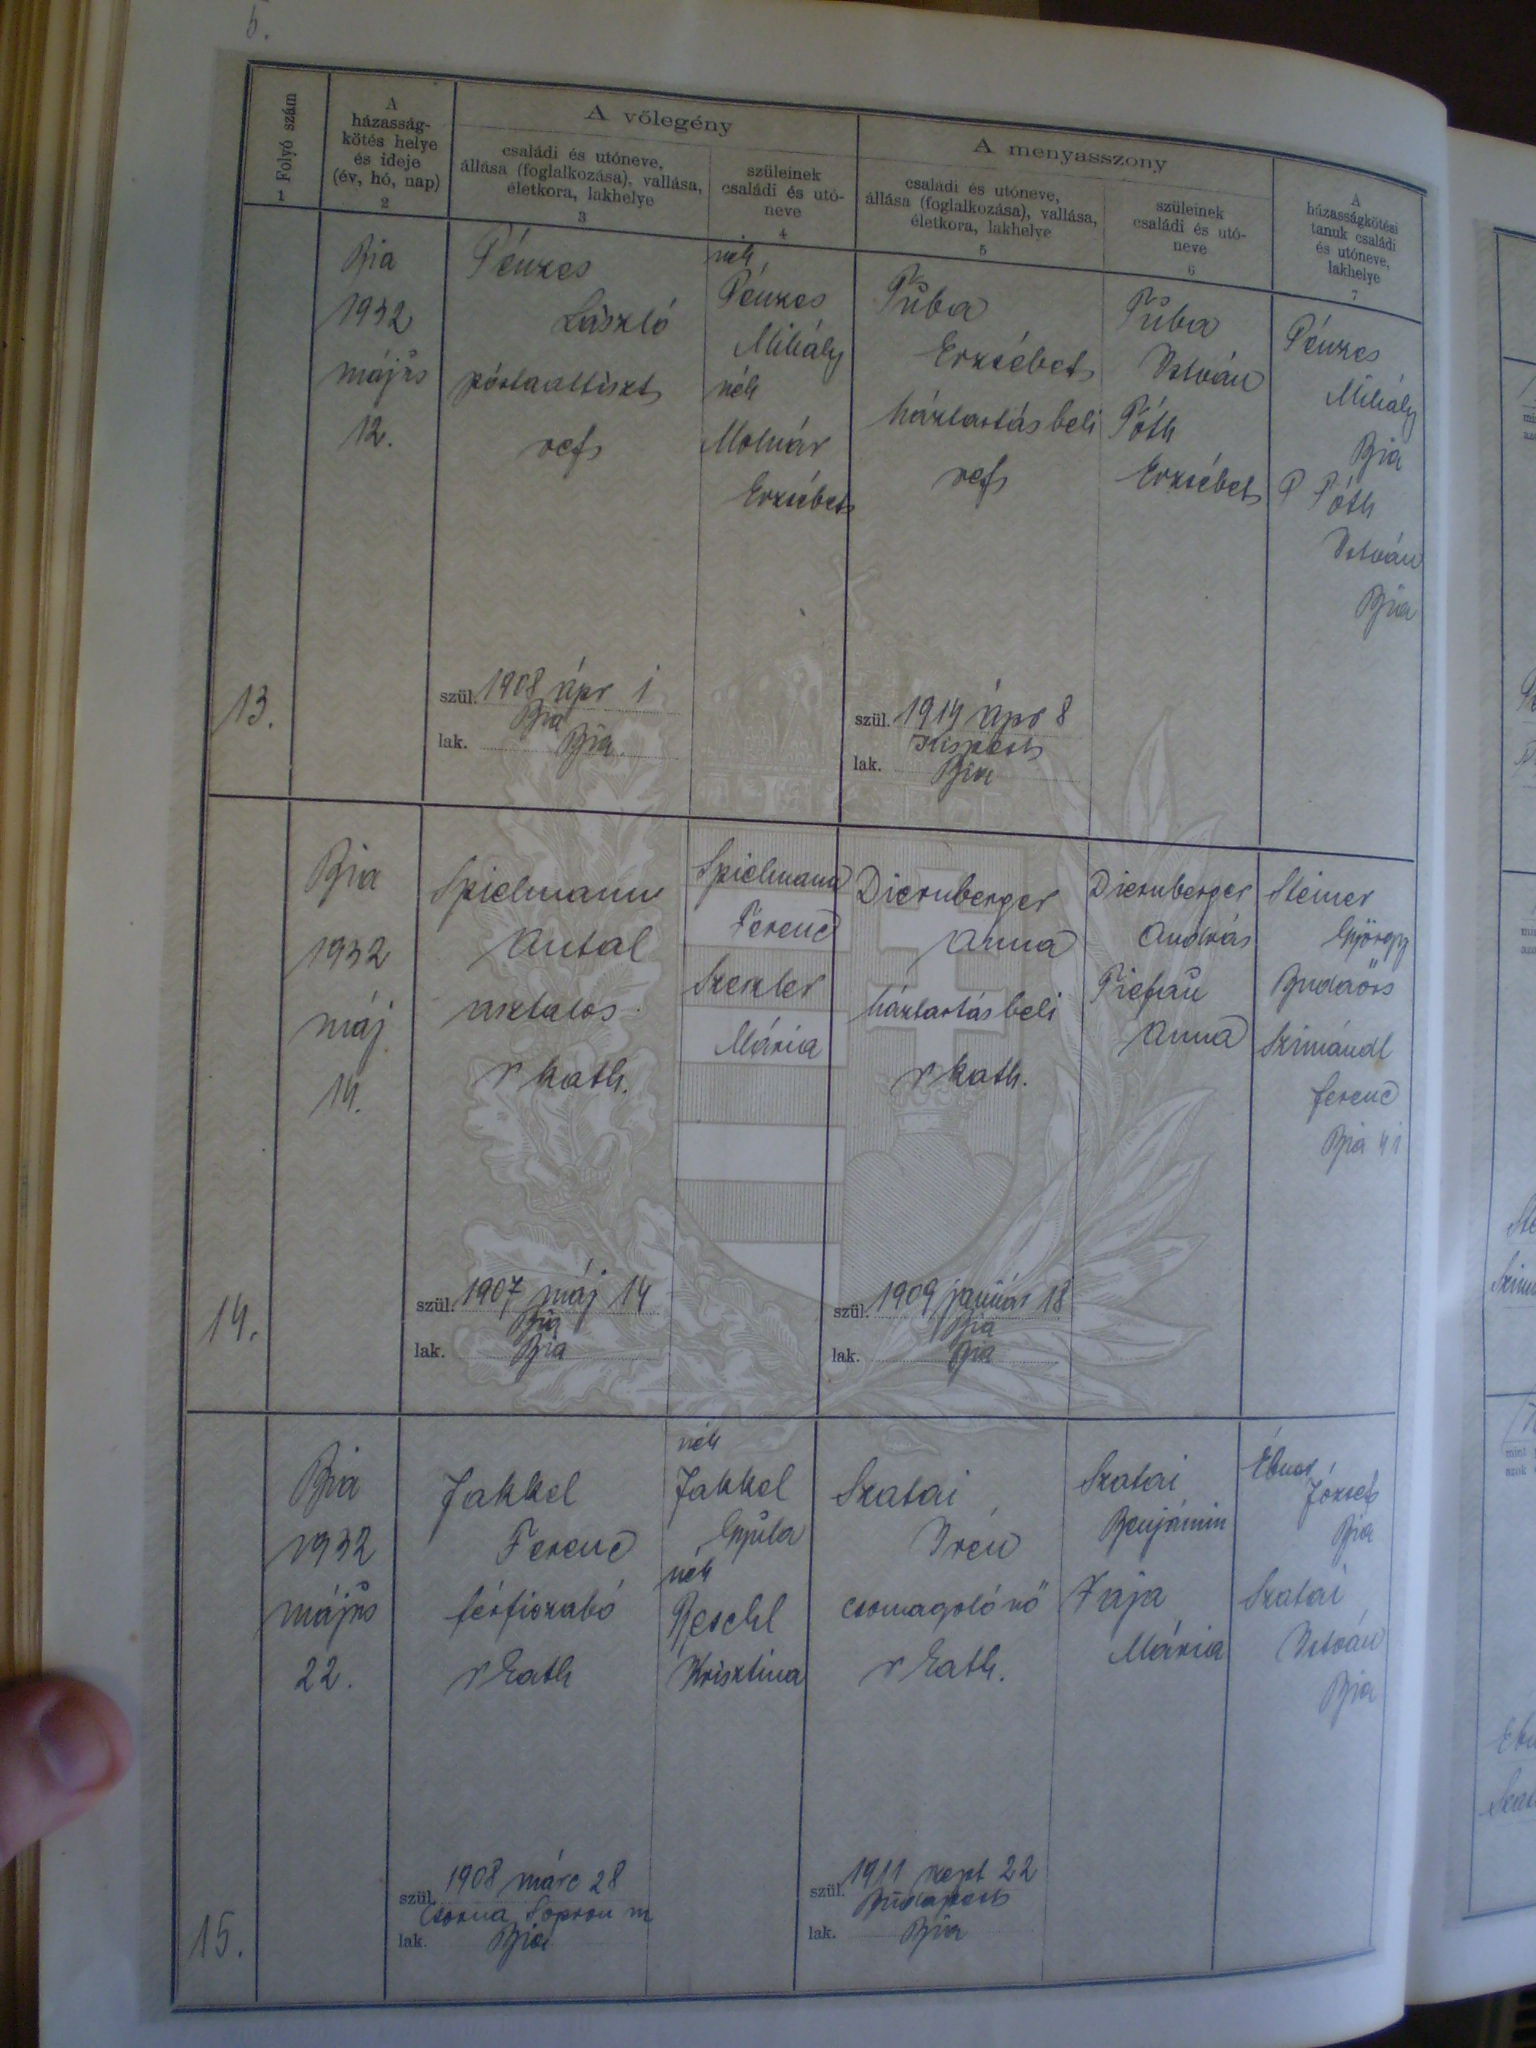 5.
Folyó szám
1
A
házasság-
kötés helye
és ideje
(év, hó, nap)
2
A vőlegény
családi és utóneve,
állása (foglalkozása), vallása,
életkora, lakhelye
3
szüleinek
családi és utó-
neve
4
A menyasszony
családi és utóneve,
állása (foglalkozása), vallása,
életkora, lakhelye
5
szüleinek
családi és utó-
neve
6
A
házasságkötési
tanuk családi
és utóneve,
lakhelye
7
13.
Bia
1932
május
12.
Pénzes
László
póstaaltiszt
ref
szül. 1908 ápr 1
Bia
lak. Bia
néh
Pénzes
Mihály
néh
Molnár
Erzsébet
Erzsébet
háztartásbeli
ref
szül. 1914 ápr 8
Kispest
lak. Bia
István
Tóth
Erzsébet
Pénzes
Mihály
Bia
P Tóth
István
Bia
14.
Bia
1932
máj
14.
Spielmann
Antal
asztalos
r kath.
szül. 1907 máj 14
Bia
lak. Bia
Spielmann
Ferenc
Szeszler
Mária
Diernberger
Anna
háztartásbeli
r kath.
szül. 1909 január 18
Bia
lak. Bia
Diernberger
András
Anna
Steiner
György
Budaörs
Szimándl
Ferenc
Bia
15.
Bia
1932
május
22.
Jakkel
Ferenc
férfiszabó
r kath
szül. 1908 márc 28
Csorna Sopron m
lak. Bia
néh
Jakkel
Gyula
néh
Reschl
Krisztina
Szatai
Irén
csomagolónő
r kath.
szül. 1911 szept 22
Budapest
lak. Bia
Szatai
Benjámin
Vaja
Mária
Ébner
József
Bia
Szatai
István
Bia